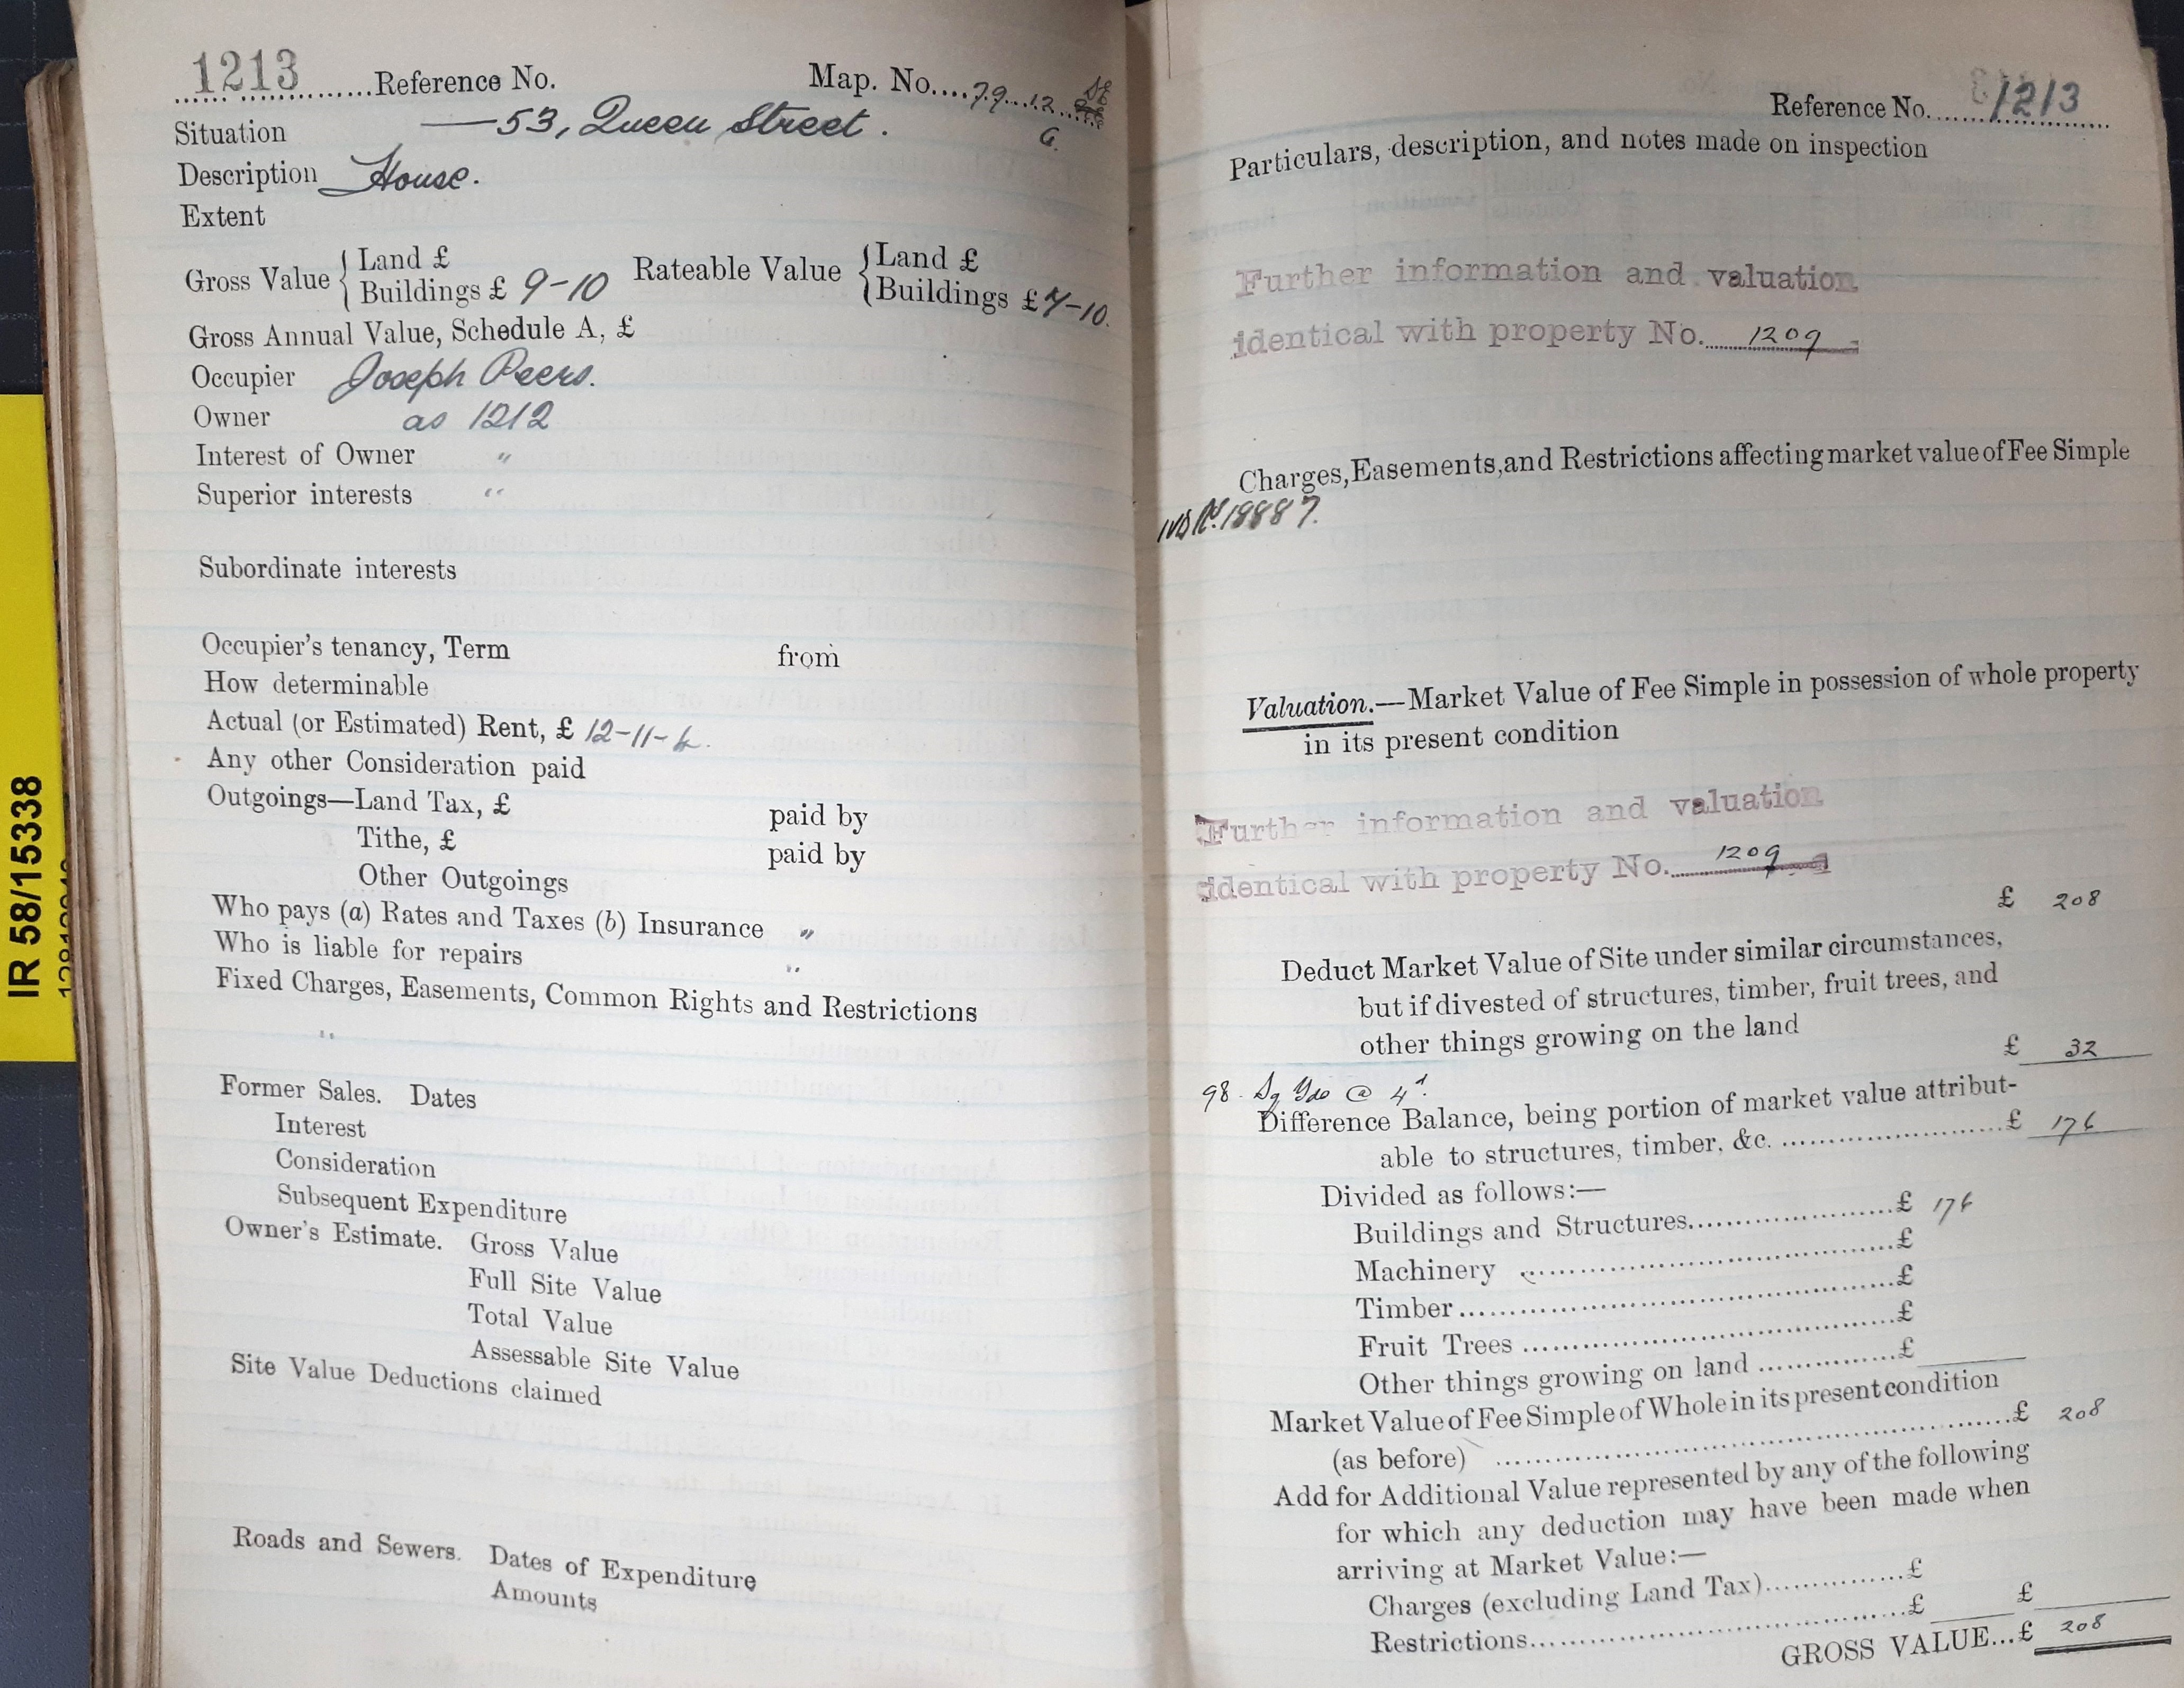 1213 Reference No. Map. No. 79. 12. SE
G.
Situation — 53, Queen Street.
Description House.
Extent
Gross Value { Land £ Rateable Value { Land £
Buildings £ 9-10 Buildings £ 7-10.
Gross Annual Value, Schedule A, £
Occupier Joseph Peers.
Owner as 1212
Interest of Owner "
Superior interests "
Subordinate interests
Occupier's tenancy, Term from
How determinable
Actual (or Estimated) Rent, £ 12-11-4.
Any other Consideration paid
Outgoings—Land Tax, £ paid by
Tithe, £ paid by
Other Outgoings
Who pays (a) Rates and Taxes (b) Insurance "
Who is liable for repairs "
Fixed Charges, Easements, Common Rights and Restrictions
"
Former Sales. Dates
Interest
Consideration
Subsequent Expenditure
Owner's Estimate. Gross Value
Full Site Value
Total Value
Assessable Site Value
Site Value Deductions claimed
Roads and Sewers. Dates of Expenditure
Amounts
IR 58/15338
Reference No. 1213
Particulars, description, and notes made on inspection
Further information and valuation
identical with property No. 1209
Charges, Easements, and Restrictions affecting market value of Fee Simple
18887.
Valuation.—Market Value of Fee Simple in possession of whole property
in its present condition
Further information and valuation
identical with property No. 1209
£ 208
Deduct Market Value of Site under similar circumstances,
but if divested of structures, timber, fruit trees, and
other things growing on the land £ 32
98. Sq Yds @ 4d.
Difference Balance, being portion of market value attribut-
able to structures, timber, &c. £ 176
Divided as follows:—
Buildings and Structures £ 176
Machinery £
Timber £
Fruit Trees £
Other things growing on land £
Market Value of Fee Simple of Whole in its present condition
(as before) £ 208
Add for Additional Value represented by any of the following
for which any deduction may have been made when
arriving at Market Value:—
Charges (excluding Land Tax) £
Restrictions £ £
GROSS VALUE... £ 208